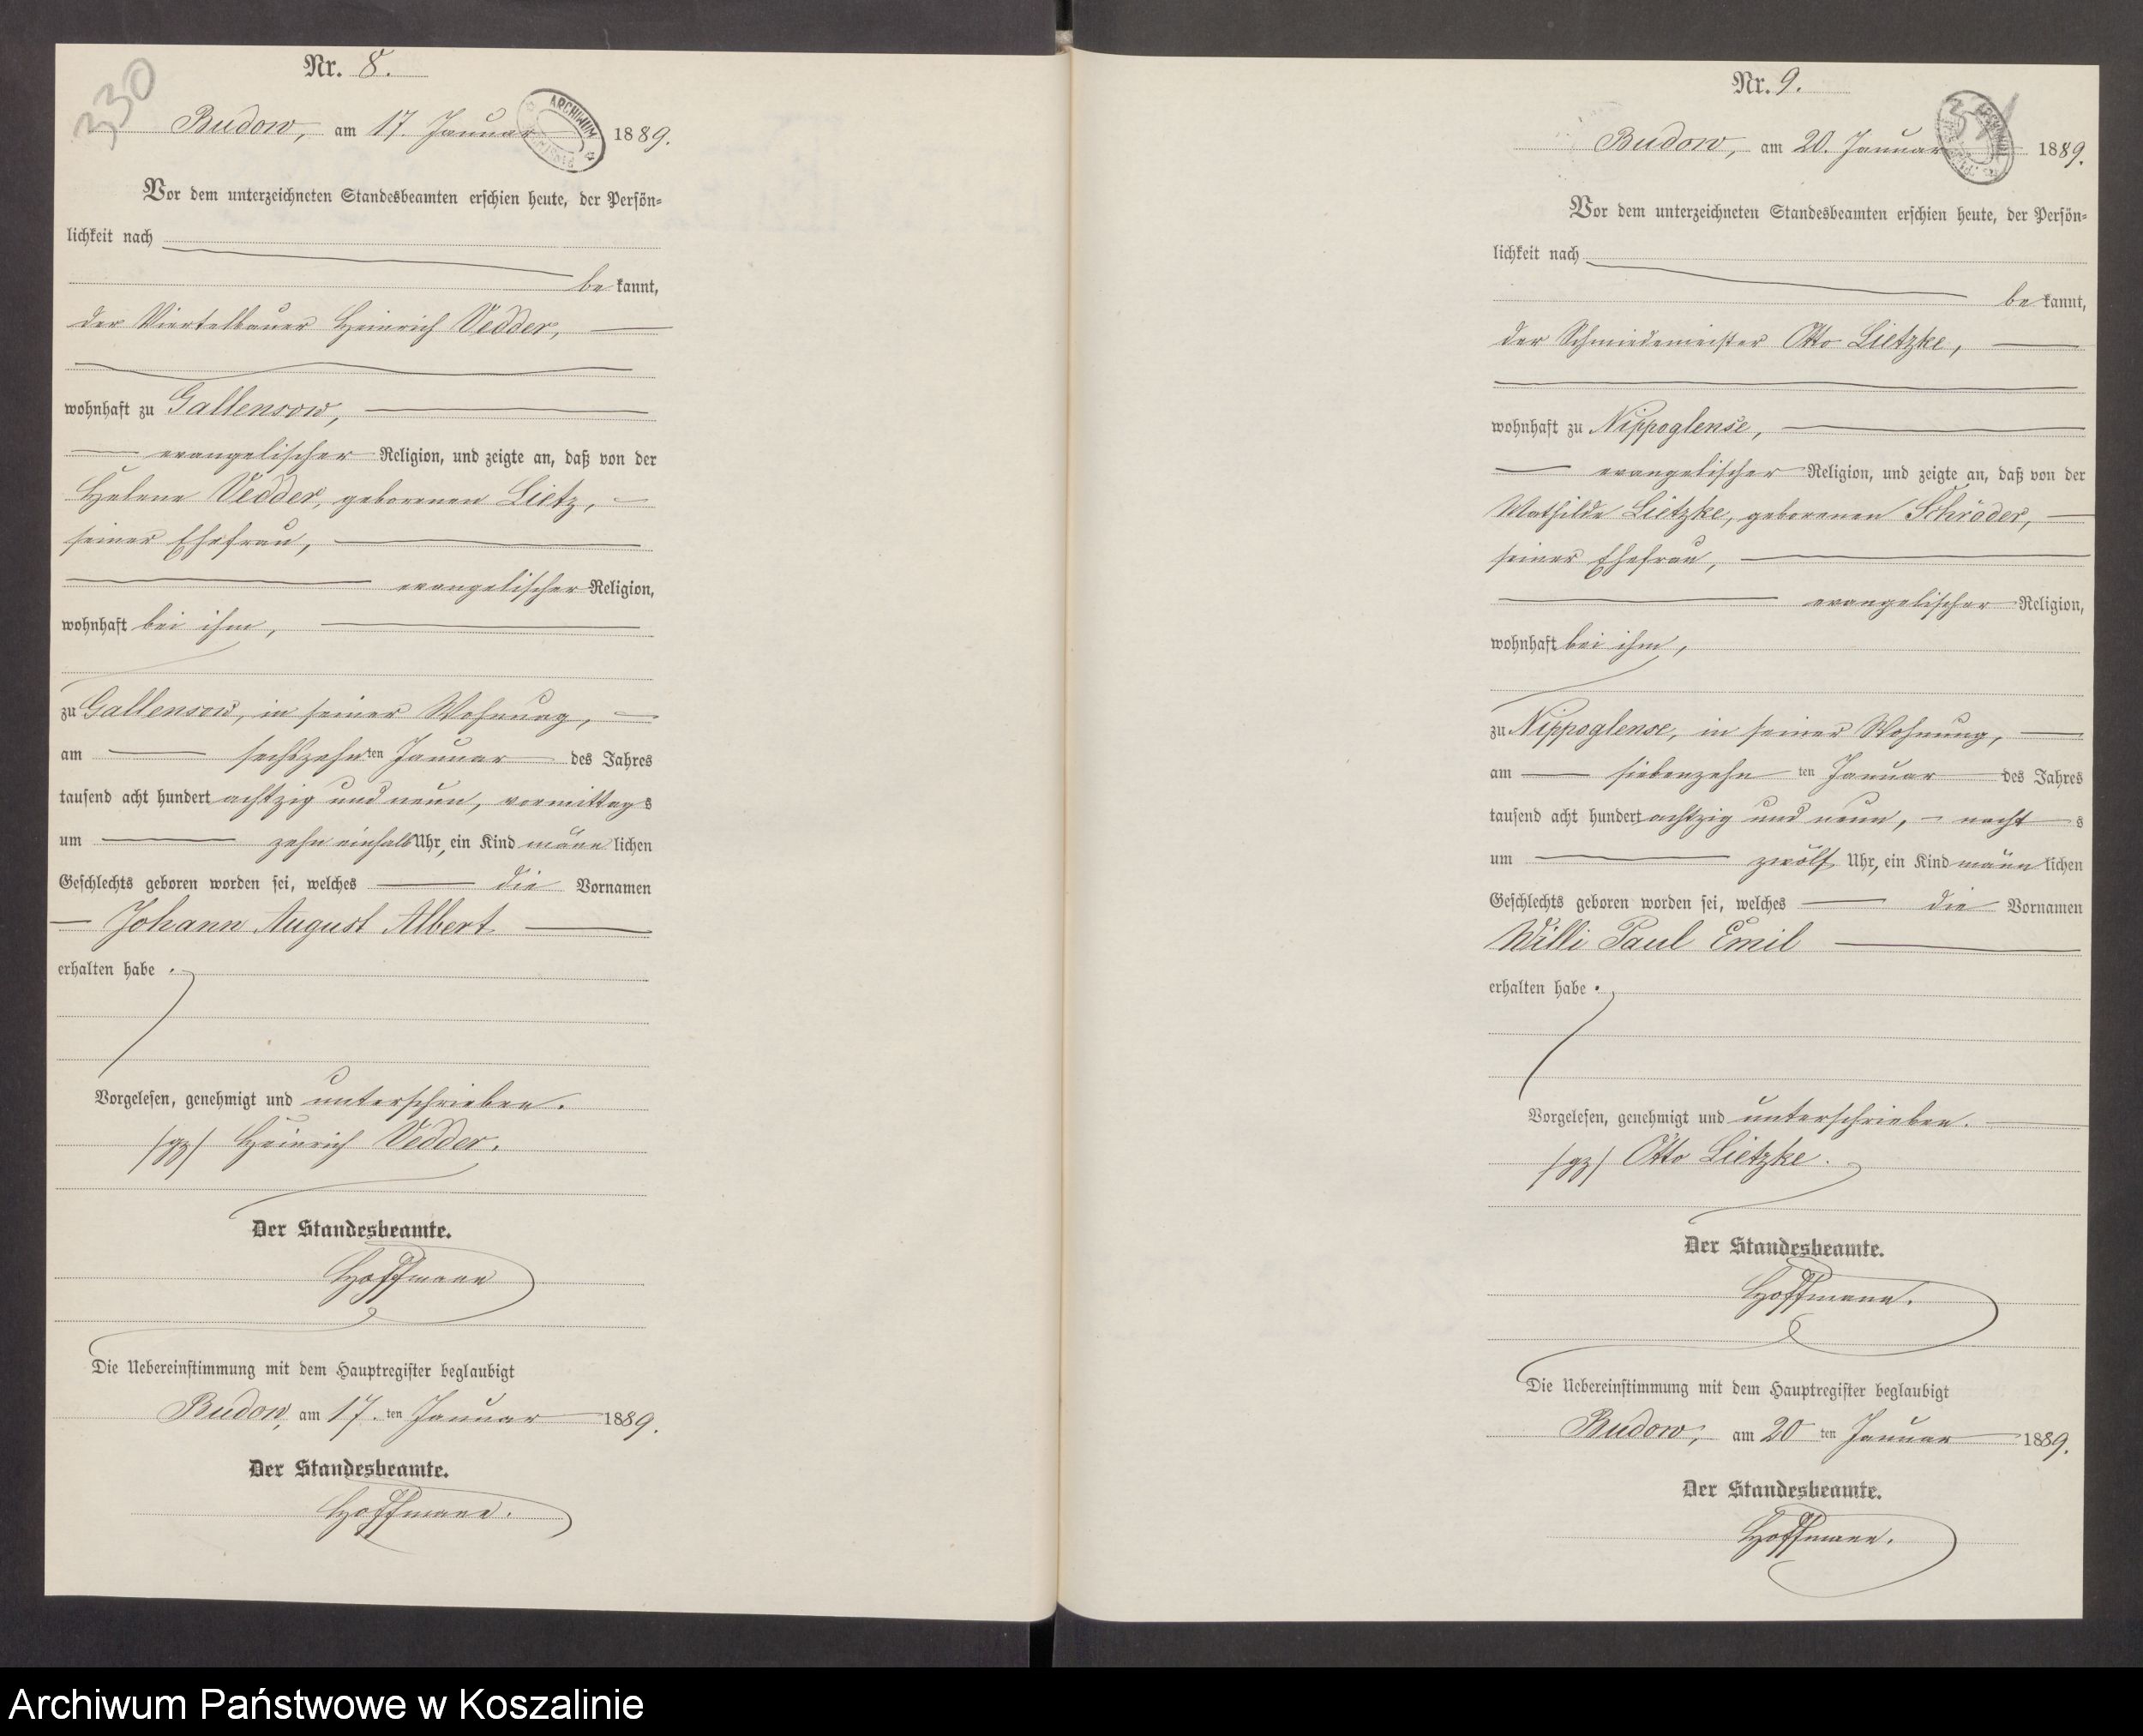 330
Nr. 8.
Budow, am 17. Januar 1889.
ARCHIWUM
Vor dem unterzeichneten Standesbeamten erschien heute, der Persön=
lichkeit nach
be kannt,
der Viertelbauer Heinrich Vedder,
wohnhaft zu Gallensow,
evangelischer Religion, und zeigte an, daß von der
Helene Vedder, geborenen Lietz,
seiner Ehefrau,
evangelischer Religion,
wohnhaft bei ihm,
zu Gallensow, in seiner Wohnung,
am sechszehnten Januar des Jahres
tausend acht hundert achtzig und neun, vormittags
um zehn einhalb Uhr, ein Kind männlichen
Geschlechts geboren worden sei, welches die Vornamen
Johann August Albert
erhalten habe.
Vorgelesen, genehmigt und unterschrieben.
/gz/ Heinrich Vedder.
Der Standesbeamte.
Hoffmann
Die Uebereinstimmung mit dem Hauptregister beglaubigt
Budow, am 17. ten Januar 1889.
Der Standesbeamte.
Hoffmann.
Nr. 9.
Budow, am 20. Januar 1889.
Vor dem unterzeichneten Standesbeamten erschien heute, der Persön=
lichkeit nach
be kannt,
der Schmiedemeister Otto Lietzke,
wohnhaft zu Nippoglense,
evangelischer Religion, und zeigte an, daß von der
Mathilde Lietzke, geborenen Schröder,
seiner Ehefrau,
evangelischer Religion,
wohnhaft bei ihm,
zu Nippoglense, in seiner Wohnung,
am siebenzehn ten Januar des Jahres
tausend acht hundert achtzig und neun, nachts
um zwölf Uhr, ein Kind männlichen
Geschlechts geboren worden sei, welches die Vornamen
Willi Paul Emil
erhalten habe.
Vorgelesen, genehmigt und unterschrieben.
/gz/ Otto Lietzke.
Der Standesbeamte.
Hoffmann.
Die Uebereinstimmung mit dem Hauptregister beglaubigt
Budow, am 20 ten Januar 1889.
Der Standesbeamte.
Hoffmann.
Archiwum Państwowe w Koszalinie